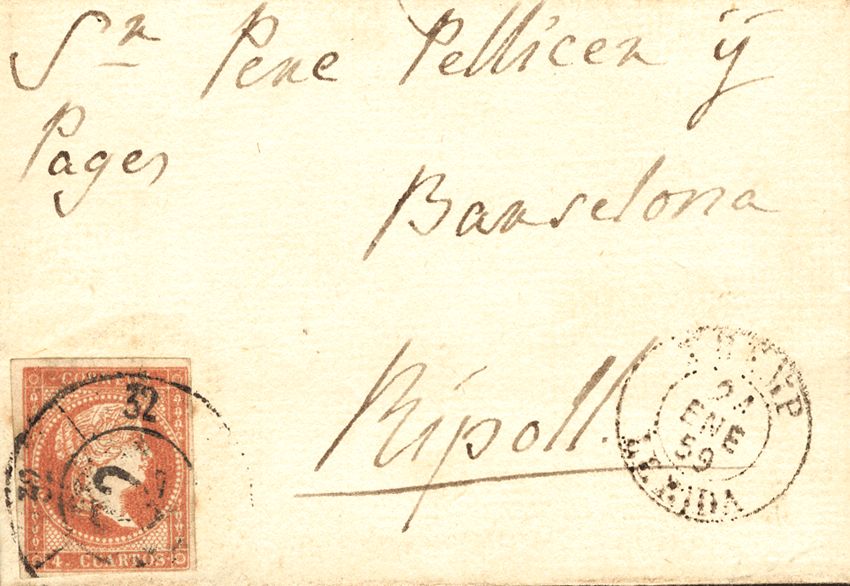 Sn Pere Pellicer ÿ
Pages
Barselona
Ripoll.
CORREOS
32
4 CUARTOS
21
ENE
59
LERIDA